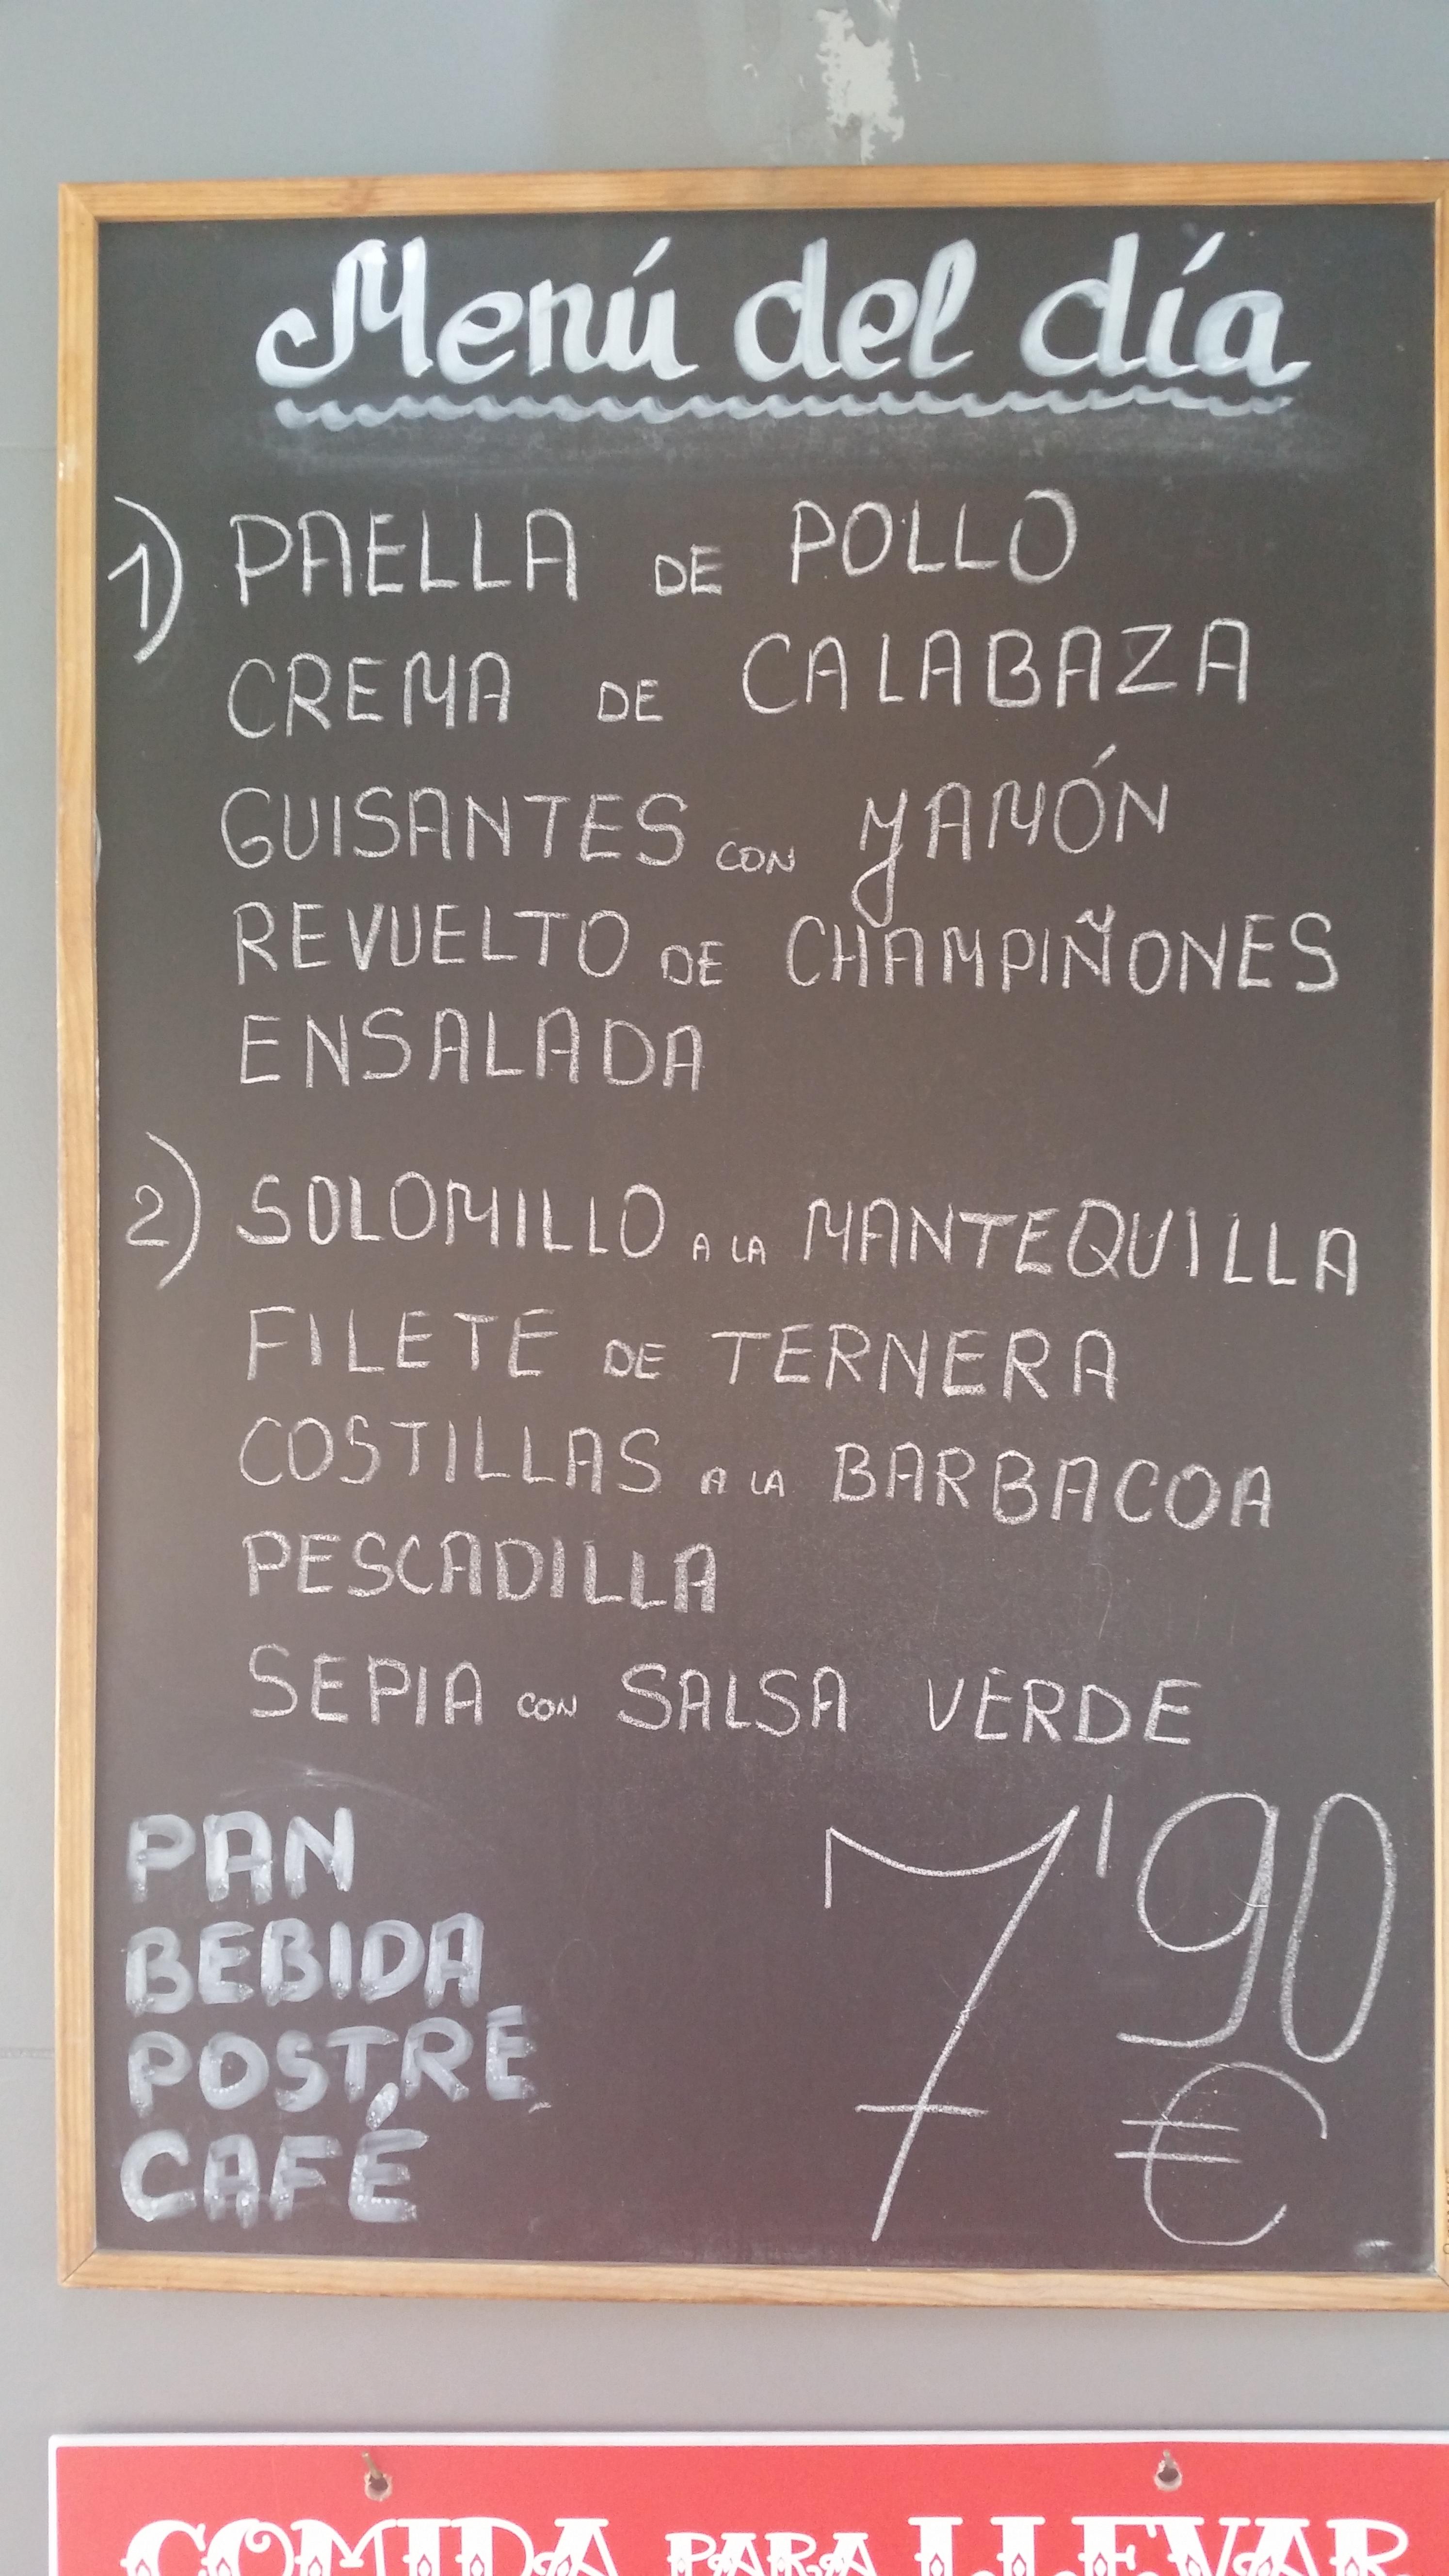 Menú del día
1) PAELLA DE POLLO
CREMA DE CALABAZA
GUISANTES CON JAMÓN
REVUELTO DE CHAMPIÑONES
ENSALADA
2) SOLOMILLO A LA MANTEQUILLA
FILETE DE TERNERA
COSTILLAS A LA BARBACOA
PESCADILLA
SEPIA CON SALSA VERDE
PAN
BEBIDA
POSTRE
CAFÉ
7'90
€
COMIDA PARA LLEVAR